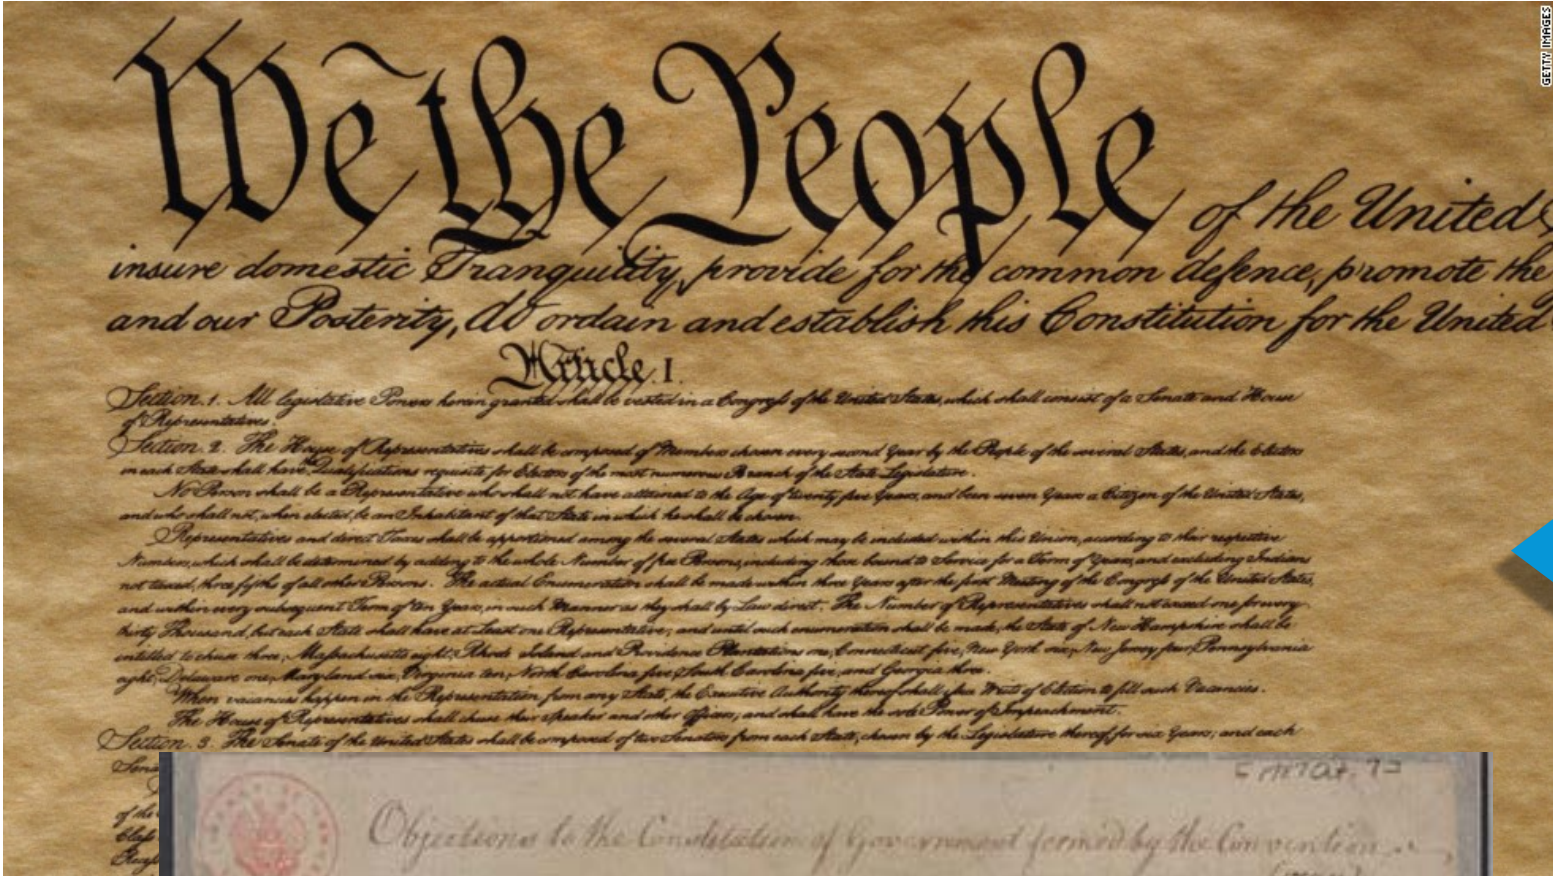 GETTY IMAGES
We the People of the United S
insure domestic Tranquility, provide for the common defence, promote the
and our Posterity, do ordain and establish this Constitution for the United
Article. I.
Section. 1. All legislative Powers herein granted shall be vested in a Congress of the United States, which shall consist of a Senate and House
of Representatives.
Section. 2. The House of Representatives shall be composed of Members chosen every second Year by the People of the several States, and the Electors
in each State shall have Qualifications requisite for Electors of the most numerous Branch of the State Legislature.
No Person shall be a Representative who shall not have attained to the Age of twenty five Years, and been seven Years a Citizen of the United States,
and who shall not, when elected, be an Inhabitant of that State in which he shall be chosen.
Representatives and direct Taxes shall be apportioned among the several States which may be included within this Union, according to their respective
Numbers, which shall be determined by adding to the whole Number of free Persons, including those bound to Service for a Term of Years, and excluding Indians
not taxed, three fifths of all other Persons. The actual Enumeration shall be made within three Years after the first Meeting of the Congress of the United States,
and within every subsequent Term of ten Years, in such Manner as they shall by Law direct. The Number of Representatives shall not exceed one for every
thirty Thousand, but each State shall have at Least one Representative; and until such enumeration shall be made, the State of New Hampshire shall be
entitled to chuse three, Massachusetts eight, Rhode Island and Providence Plantations one, Connecticut five, New York six, New Jersey four, Pennsylvania
eight, Delaware one, Maryland six, Virginia ten, North Carolina five, South Carolina five, and Georgia three.
When vacancies happen in the Representation from any State, the Executive Authority thereof shall issue Writs of Election to fill such Vacancies.
The House of Representatives shall chuse their Speaker and other Officers; and shall have the sole Power of Impeachment.
Section. 3. The Senate of the United States shall be composed of two Senators from each State, chosen by the Legislature thereof for six Years; and each
Sena
of the
Class
Objections to the Constitution of Government formed by the Convention